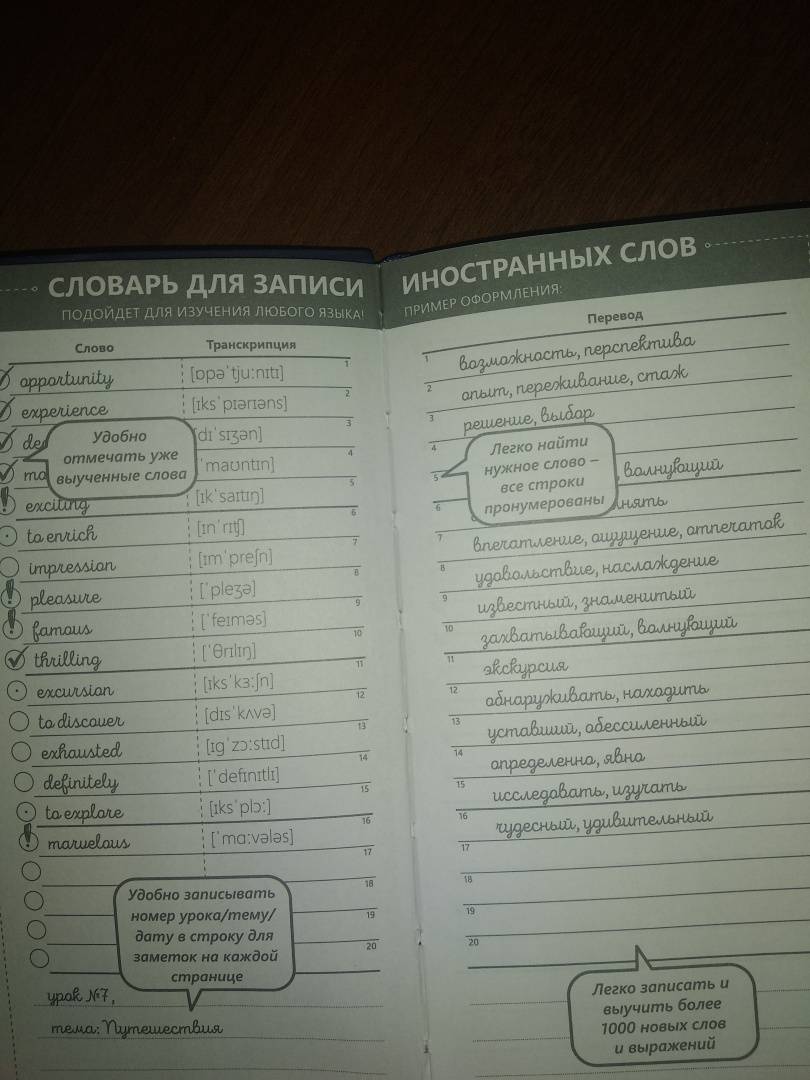 СЛОВАРЬ ДЛЯ ЗАПИСИ
ПОДОЙДЕТ ДЛЯ ИЗУЧЕНИЯ ЛЮБОГО ЯЗЫКА!
Слово Транскрипция
opportunity [ɒpəˈtjuːnɪtɪ] 1
experience [ɪksˈpɪərɪəns] 2
de [dɪˈsɪʒən] 3
mo [ˈmaʊntɪn] 4
exciting [ɪkˈsaɪtɪŋ] 5
to enrich [ɪnˈrɪtʃ] 6
impression [ɪmˈpreʃn] 7
pleasure [ˈpleʒə] 8
famous [ˈfeɪməs] 9
thrilling [ˈθrɪlɪŋ] 10
excursion [ɪksˈkɜːʃn] 11
to discover [dɪsˈkʌvə] 12
exhausted [ɪgˈzɔːstɪd] 13
definitely [ˈdefɪnɪtlɪ] 14
to explore [ɪksˈplɔː] 15
marvelous [ˈmɑːvələs] 16
17
18
19
20
Удобно
отмечать уже
выученные слова
Удобно записывать
номер урока/тему/
дату в строку для
заметок на каждой
странице
урок №7,
тема: Путешествия
ИНОСТРАННЫХ СЛОВ
ПРИМЕР ОФОРМЛЕНИЯ:
Перевод
1 возможность, перспектива
2 опыт, переживание, стаж
3 решение, выбор
4
5 , волнующий
6 нять
7 впечатление, ощущение, отпечаток
8 удовольствие, наслаждение
9 известный, знаменитый
10 захватывающий, волнующий
11 экскурсия
12 обнаруживать, находить
13 уставший, обессиленный
14 определенно, явно
15 исследовать, изучать
16 чудесный, удивительный
17
18
19
20
Легко найти
нужное слово –
все строки
пронумерованы
Легко записать и
выучить более
1000 новых слов
и выражений